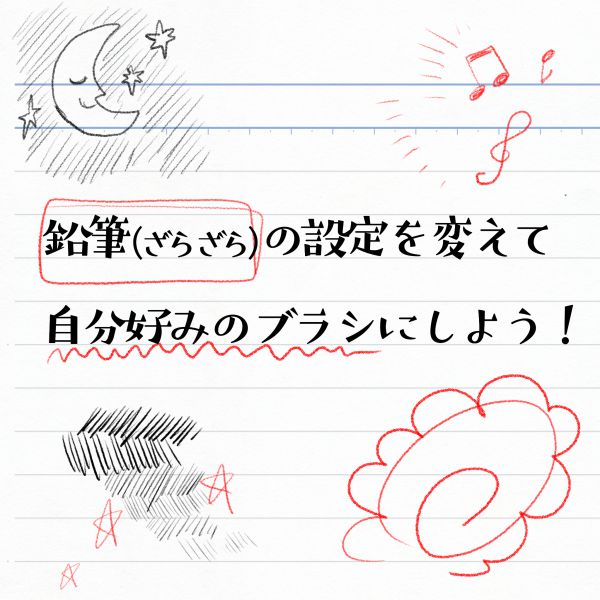 鉛筆(ざらざら)の設定を変えて
自分好みのブラシにしよう！